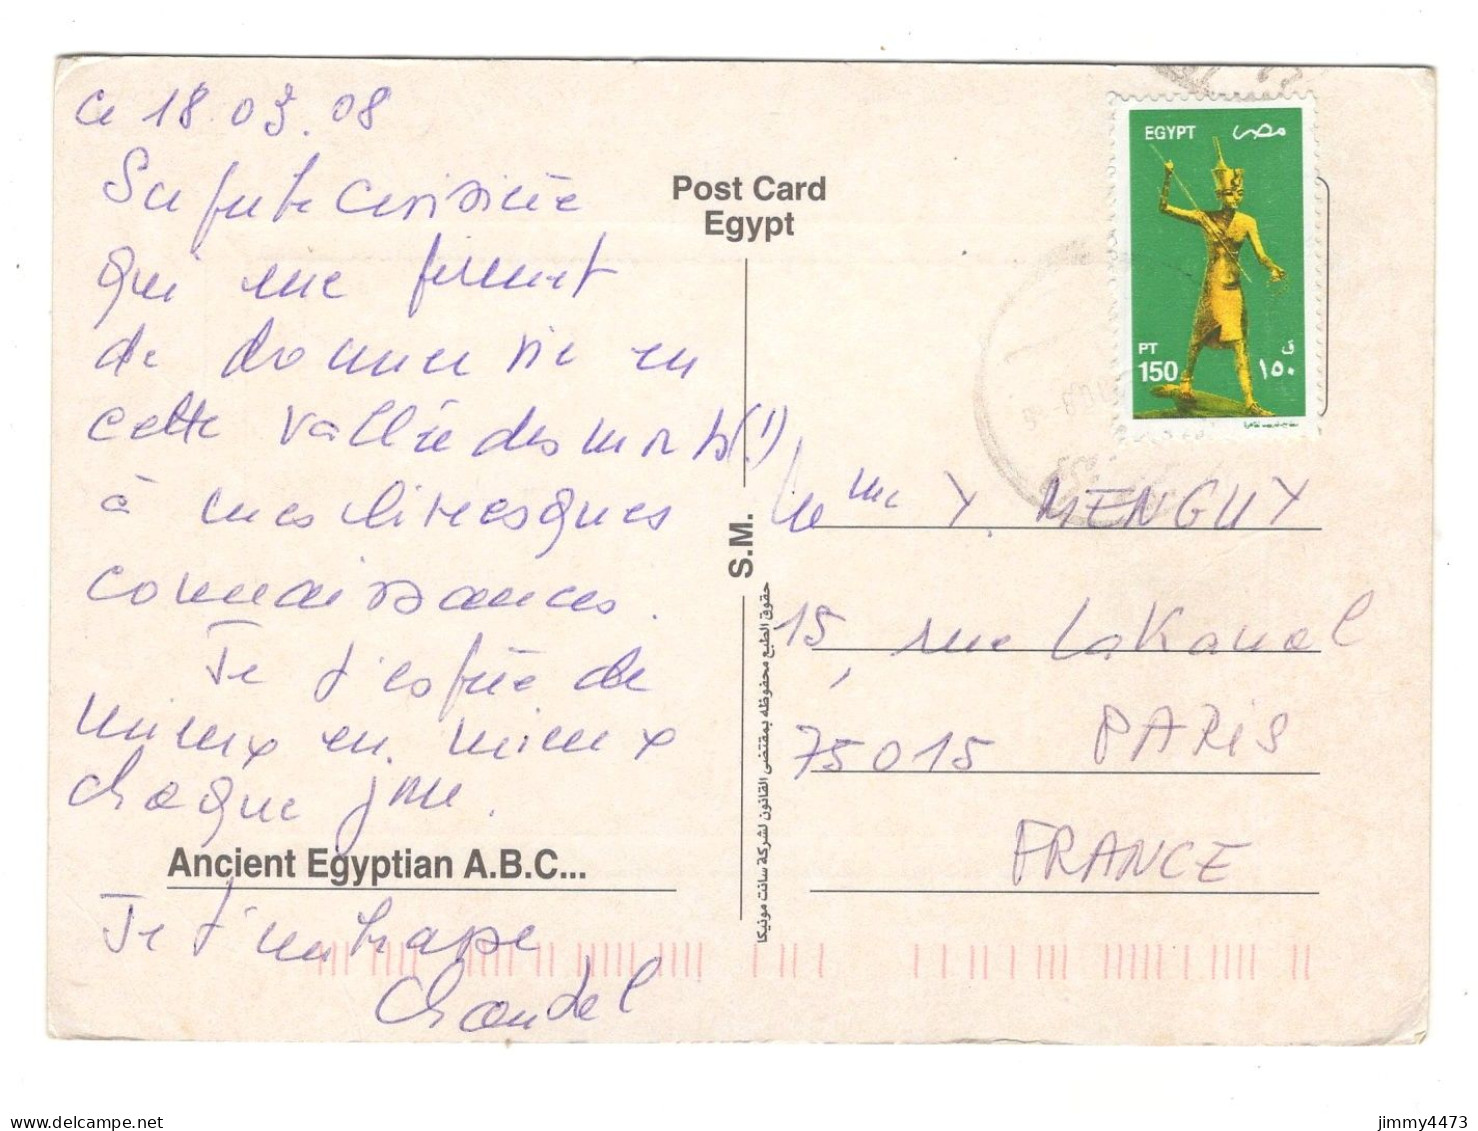 ce 18.03.08
Superbe croisière
qui me permet
de donner vie en
cette vallée des morts(!)
à mes livresques
connaissances.
Je t'espère de
mieux en mieux
chaque jour.
Ancient Egyptian A.B.C...
Je t'embrasse
Chantal
Post Card
Egypt
S.M.
حقوق الطبع محفوظه بمقتضى القانون لشركة سانت مونيكا
EGYPT مصر
PT ق
150 ١٥٠
Mme Y. MENGUY
15, rue Lakanal
75015 PARIS
FRANCE
jimmy4473
delcampe.net